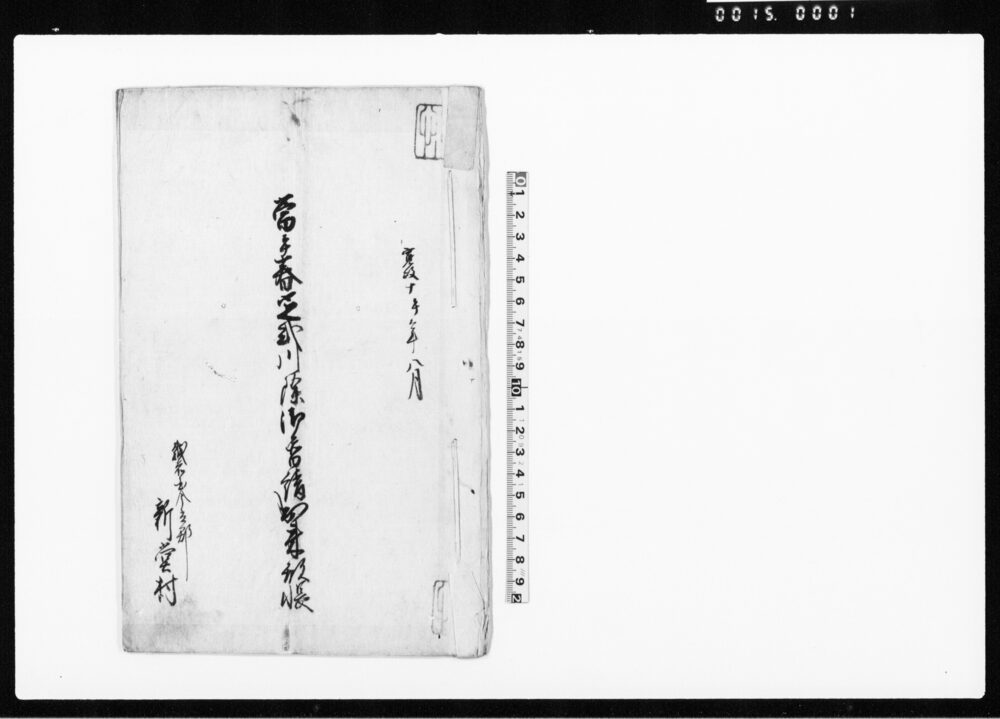 0015. 0001
寛政十午年八月
當午春定式川除御普請出来形帳
新堂村
0 1 2 3 4 5 6 7 8 9 10 1 2 3 4 5 6 7 8 9 2